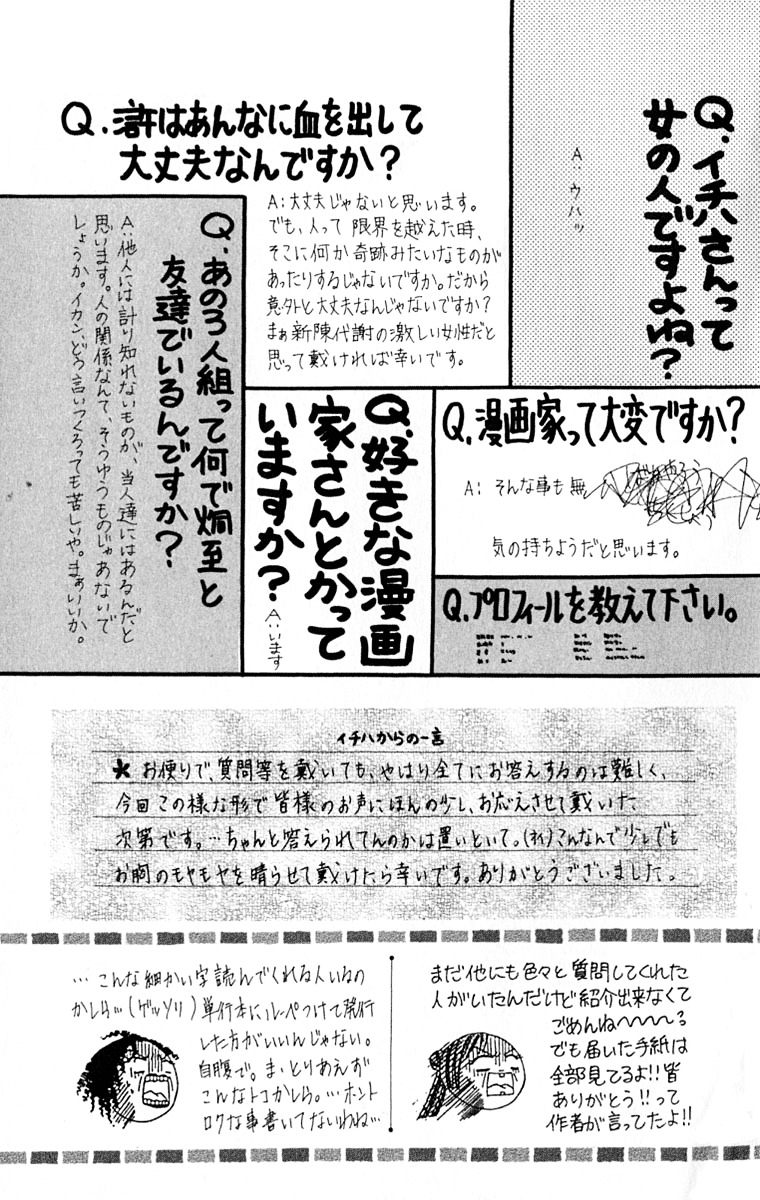 Q.イチハさんって
女の人ですよね?
A:ウハッ
Q.滸はあんなに血を出して
大丈夫なんですか?
A:大丈夫じゃないと思います。
でも、人って限界を越えた時、
そこに何か奇跡みたいなものが
あったりするじゃないですか。だから
意外と大丈夫なんじゃないですか?
まぁ新陳代謝の激しい女性だと
思って戴ければ幸いです。
Q.あの3人組って何で炯至と
友達でいるんですか?
A:他人には計り知れないものが、当人達にはあるんだと
思います。人の関係なんて、そうゆうものじゃあないで
しょうか。イカン、どう言いつくろっても苦しいや。まぁいいか。
Q.漫画家って大変ですか?
A:そんな事も無
気の持ちようだと思います。
Q.好きな漫画
家さんとかって
いますか?
A:います
Q.プロフィールを教えて下さい。
イチハからの一言
★お便りで、質問等を戴いても、やはり全てにお答えするのは難しく、
今回この様な形で皆様のお声にほんの少し、お応えさせて戴いた
次第です。…ちゃんと答えられてんのかは置いといて。(オイ)こんなんで少しでも
お胸のモヤモヤを晴らせて戴けたら幸いです。ありがとうございました。
まだ他にも色々と質問してくれた
人がいたんだけど紹介出来なくて
ごめんね〜〜〜〜る
でも届いた手紙は
全部見てるよ!!皆
ありがとう!!って
作者が言ってたよ!!
…こんな細かい字読んでくれる人いるの
かしら…(ゲッソリ)単行本にルーペつけて発行
した方がいいんじゃない。
自腹で。ま、とりあえず
こんなトコかしら。…ホント
ロクな事書いてないわね…